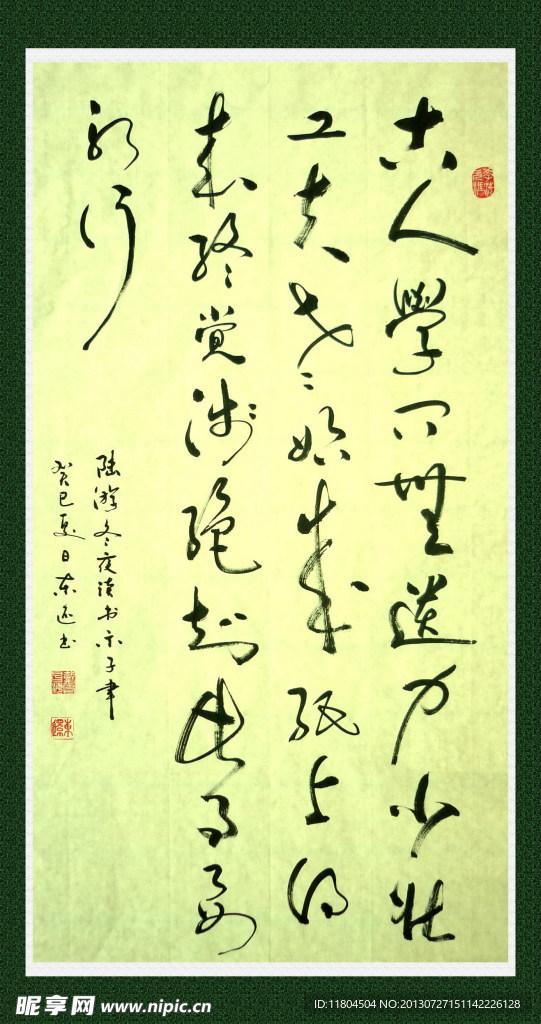 古人學问無遺力少壮
工夫老始成纸上得
来终觉浅绝知此事要
躬行
陆游冬夜读书示子聿
癸巳夏日东书
昵享网 www.nipic.cn
ID:11804504 NO:20130727151142226128